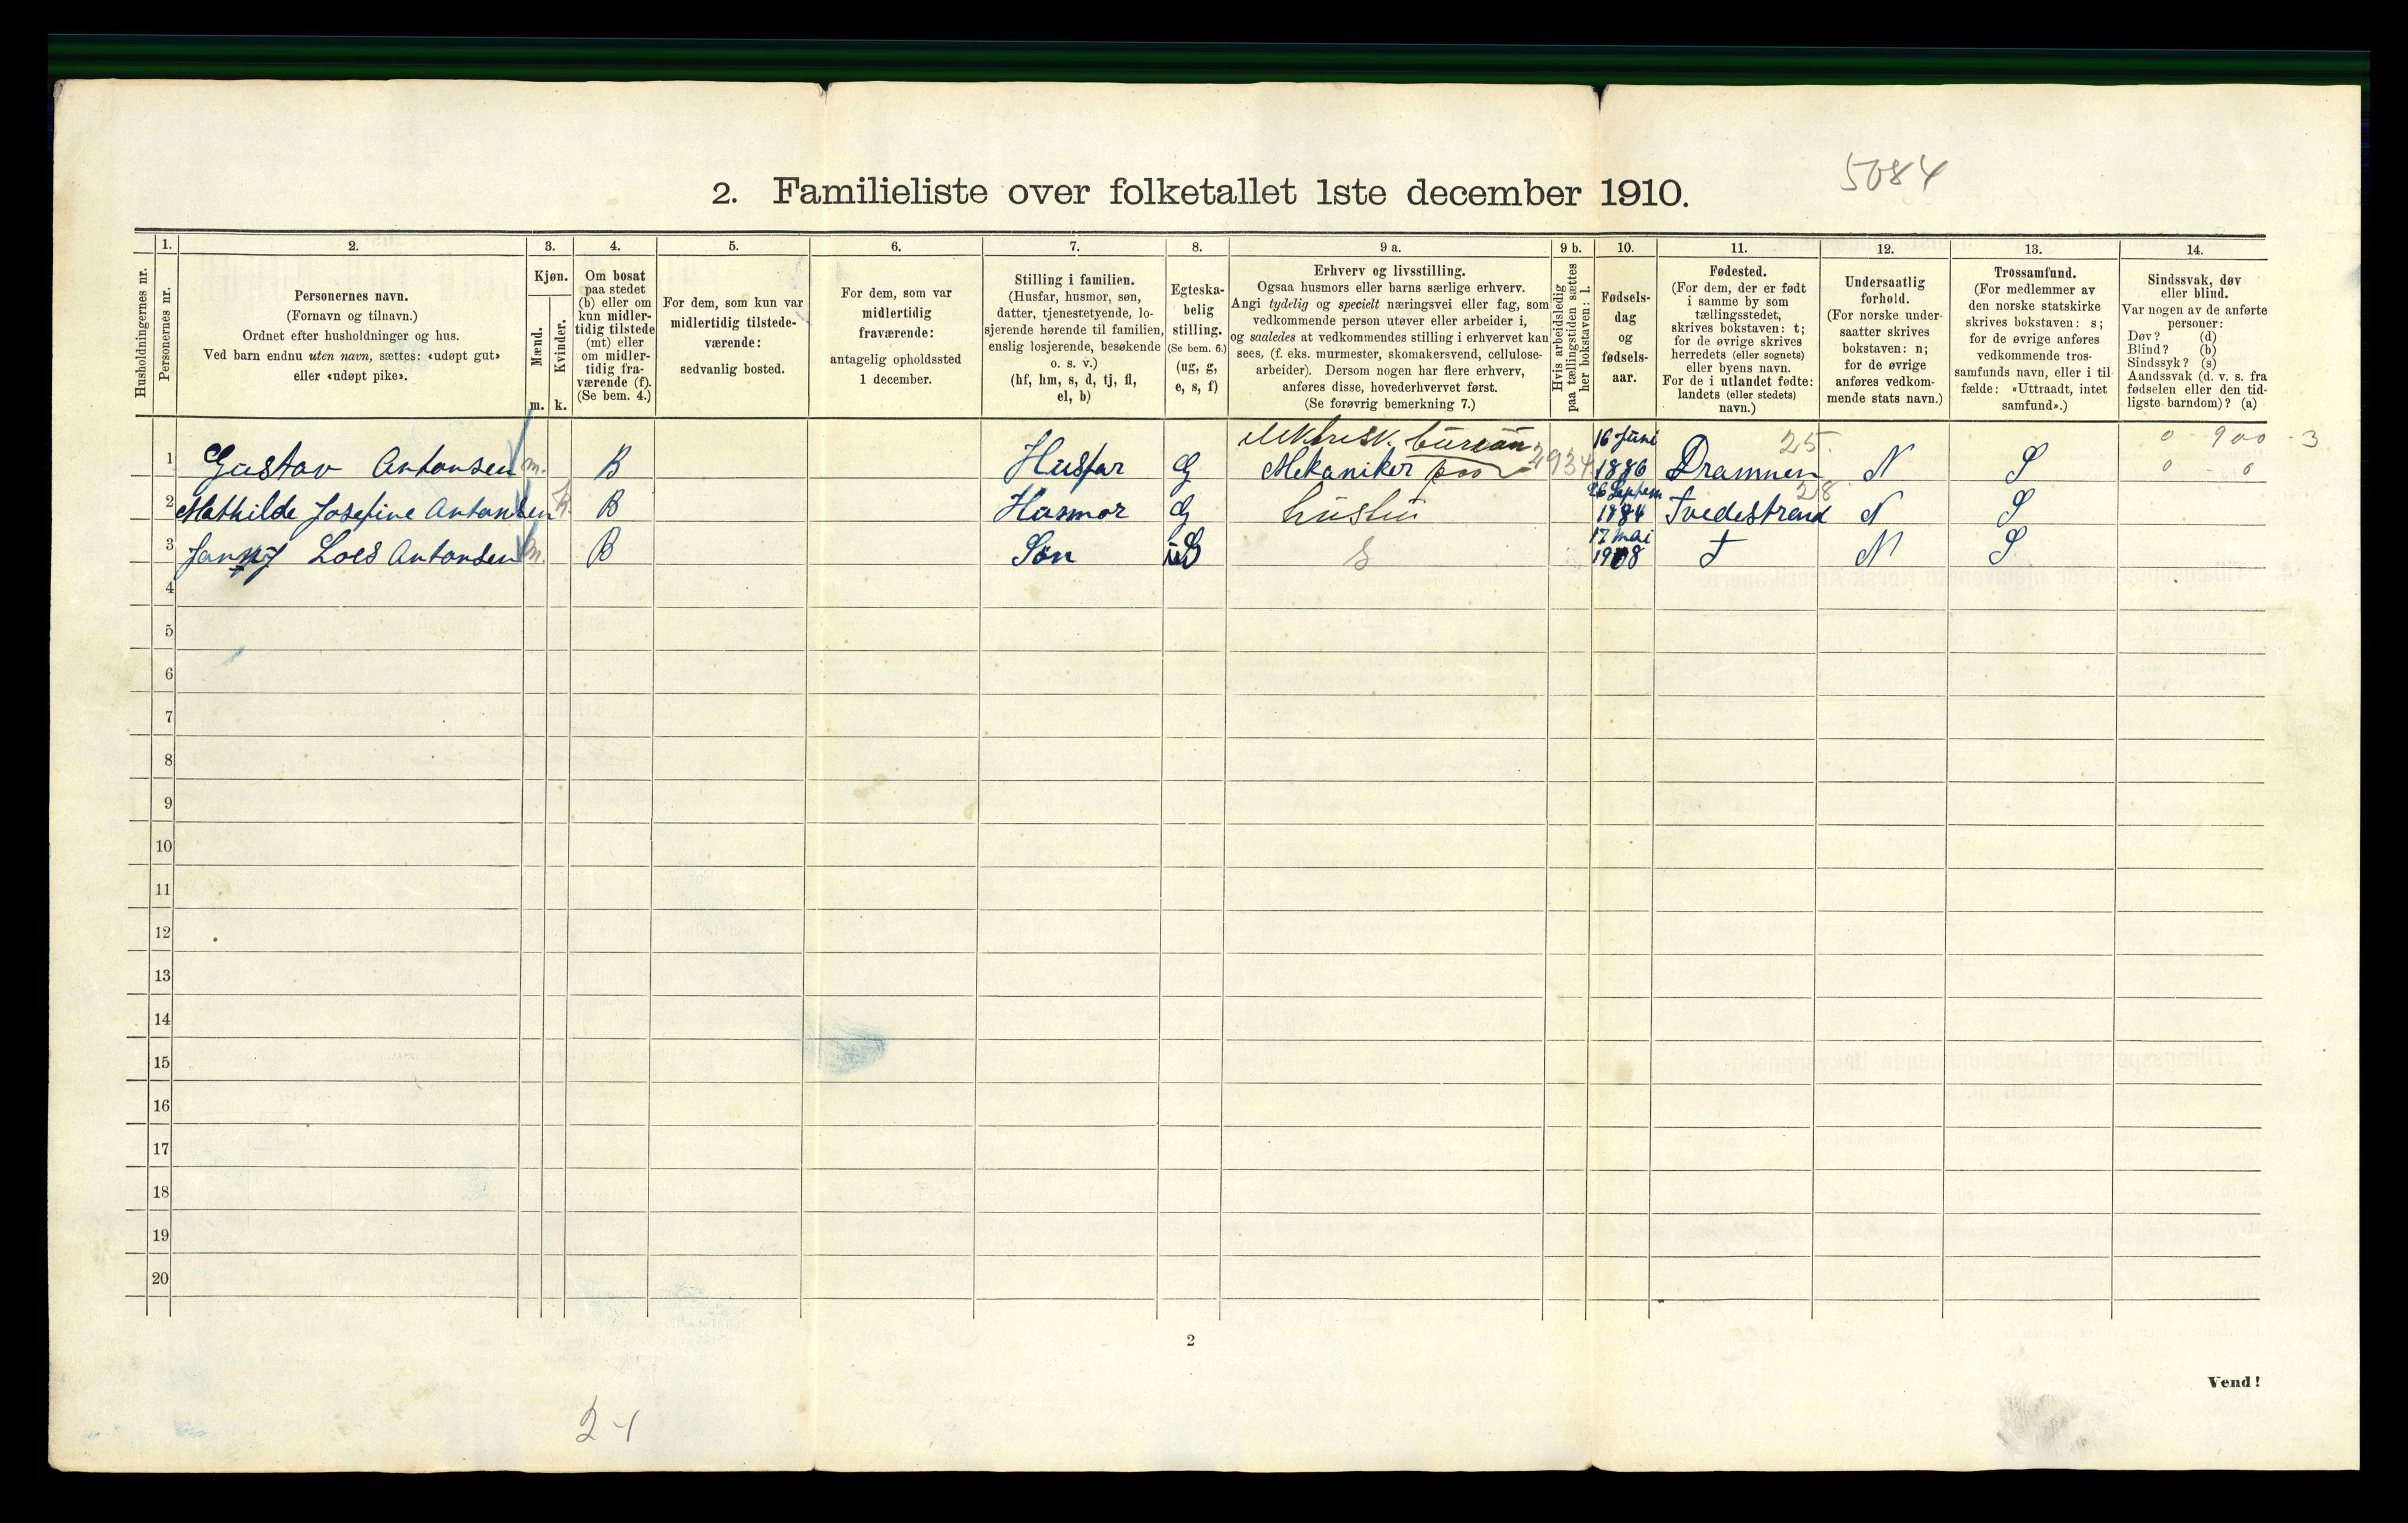 5084
2. Familieliste over folketallet 1ste december 1910.
Husholdningernes nr.
1.
Personernes nr.
2.
Personernes navn.
(Fornavn og tilnavn.)
Ordnet efter husholdninger og hus.
Ved barn endnu uten navn, sættes: «udøpt gut»
eller «udøpt pike».
3.
Kjøn.
Mænd.
m.
Kvinder.
k.
4.
Om bosat
paa stedet
(b) eller om
kun midler-
tidig tilstede
(mt) eller
om midler-
tidig fra-
værende (f).
(Se bem. 4.)
5.
For dem, som kun var
midlertidig tilstede-
værende:
sedvanlig bosted.
6.
For dem, som var
midlertidig
fraværende:
antagelig opholdssted
1 december.
7.
Stilling i familien.
(Husfar, husmor, søn,
datter, tjenestetyende, lo-
sjerende hørende til familien,
enslig losjerende, besøkende
o. s. v.)
(hf, hm, s, d, tj, fl,
el, b)
8.
Egteska-
belig
stilling.
(Se bem. 6.)
(ug, g,
e, s, f)
9 a.
Erhverv og livsstilling.
Ogsaa husmors eller barns særlige erhverv.
Angi tydelig og specielt næringsvei eller fag, som
vedkommende person utøver eller arbeider i,
og saaledes at vedkommendes stilling i erhvervet kan
sees, (f. eks. murmester, skomakersvend, cellulose-
arbeider). Dersom nogen har flere erhverv,
anføres disse, hovederhvervet først.
(Se forøvrig bemerkning 7.)
9 b.
Hvis arbeidsledig
paa tællingstiden sættes
her bokstaven: l.
10.
Fødsels-
dag
og
fødsels-
aar.
11.
Fødested.
(For dem, der er født
i samme by som
tællingsstedet,
skrives bokstaven: t;
for de øvrige skrives
herredets (eller sognets)
eller byens navn.
For de i utlandet fødte:
landets (eller stedets)
navn.)
12.
Undersaatlig
forhold.
(For norske under-
saatter skrives
bokstaven: n;
for de øvrige
anføres vedkom-
mende stats navn.)
13.
Trossamfund.
(For medlemmer av
den norske statskirke
skrives bokstaven: s;
for de øvrige anføres
vedkommende tros-
samfunds navn, eller i til-
fælde: «Uttraadt, intet
samfund».)
14.
Sindssvak, døv
eller blind.
Var nogen av de anførte
personer:
Døv? (d)
Blind? (b)
Sindssyk? (s)
Aandssvak (d. v. s. fra
fødselen eller den tid-
ligste barndom)? (a)
elektrisk. bureau 16 Juni 25. 0 900 - 3
1 Gustav Antonsen m. B Husfar G Mekaniker paa 1886 Drammen N S 0 - 0
26 Septem 28
2 Mathilde Josefine Antonsen k. B Husmor G hustru 1884 Tvedestrand N S
17 mai
3 Antonsen m. B Søn s 1908 T N S
4
5
6
7
8
9
10
11
12
13
14
15
16
17
18
19
20
2
Vend!